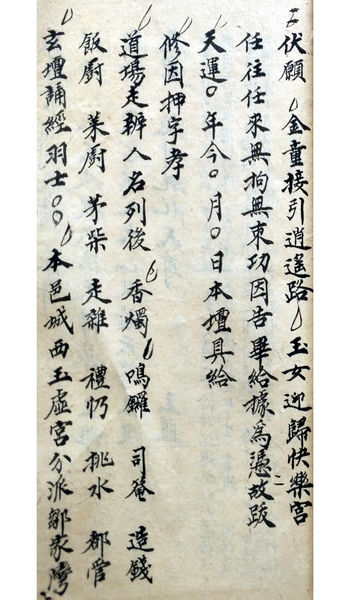 伏願 金童接引逍遥路 玉女迎歸快樂宮
任往任來無拘無束功因告畢給據為憑故跋
天運〇年今〇月〇日本壇具給
修因押字孝
道場走辦人名列後 香燭 鳴鑼 司菴 造錢
飯厨 菜厨 茅柴 走雜 禮忉 挑水 都管
玄壇誦經羽士〇〇 本邑城西玉虛宮分派鄒家灣